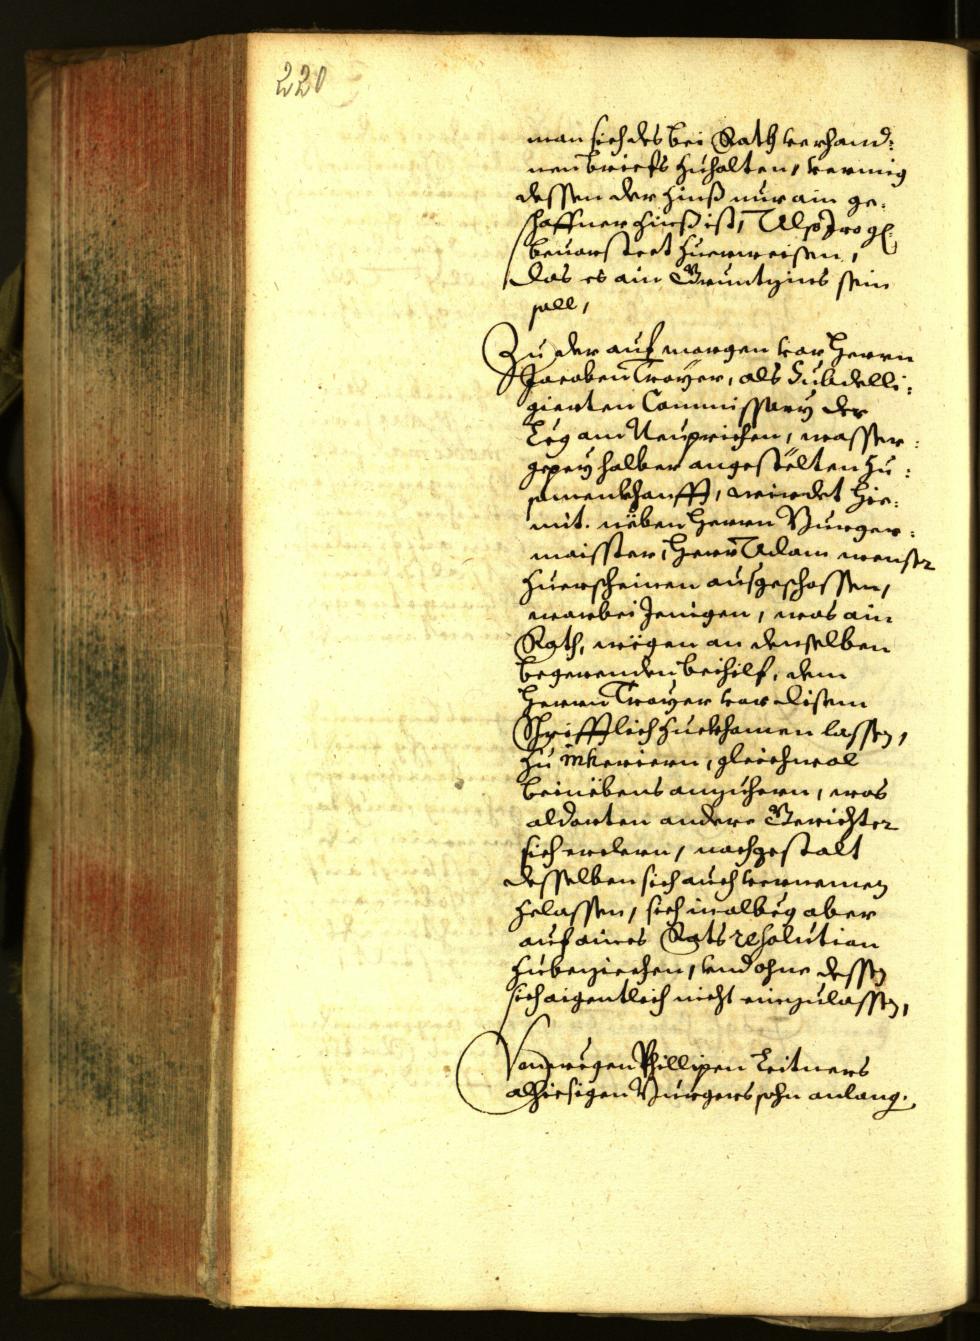 220
man sich des bei Rath verhand:
nen briefs zuhalten, vermig
dessen der Zinß nur ain ge:
schaffner Zinß ist, Also
bevorsteet zuerweisen,
das es ain Gruntzins sein
soll,
Zu der auf morgen vor Herrn
Jacoben Troyer, als Subdelli:
gierten Commissary der
Leg am Neuprichen, wasser:
gepey halber angestelten zu:
samenkhunfft, wirdet hie:
mit. neben Herrn Burger:
maisster, Herr Adam wenser
zuerscheinen ausgeschossen,
warbei Jenigen, was ain
Rath, wegen an denselben
begerenden beihilf, dem
Herrn Troyer vor disem
Schrifftlich zuekhomen lassen,
zu inheriern, gleichwol
beinebens anzuhern, was
aldorten andere Gerichter
sich erclern, nachgestalt
desselben sich auch vernemen
zelassen, sich in alweg aber
auf aines Rats resolution
zubeziechen, und ohne dessen
sich aigentlich nicht einzulassen,
Von wegen Phillipen Leitners
alhiesigen Burgers sohn anlang.